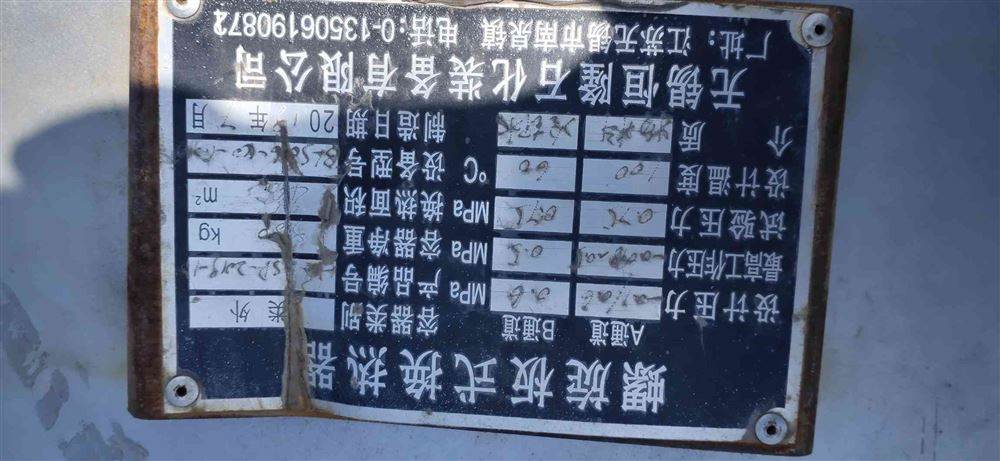 螺旋板式换热器
A通道 B通道 容器类别 类外
设计压力 0.6 MPa 产品编号
最高工作压力 0.5 MPa 容器净重 kg
试验压力 0.75 0.75 MPa 换热面积 m²
设计温度 100 60 ℃ 设备型号
介质 制造日期 20 年 月
无锡恒隆石化装备有限公司
厂址：江苏无锡市南泉镇 电话：0-13506190872